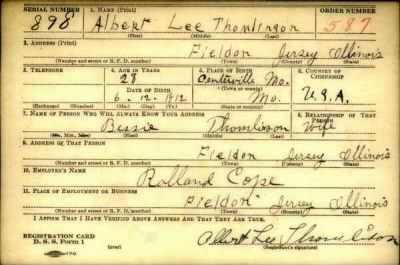 SERIAL NUMBER 1. NAME (Print) ORDER NUMBER
898 Albert Lee Thomlinson 587
(First) (Middle) (Last)
2. ADDRESS (Print)
Fieldon Jersey Illinois
(Number and street or R. F. D. number) (Town) (County) (State)
3. TELEPHONE 4. AGE IN YEARS 5. PLACE OF BIRTH 6. COUNTRY OF CITIZENSHIP
28 Centerville Mo.
DATE OF BIRTH (Town or county)
6 - 12 - 1912 Mo. U.S.A.
(Exchange) (Number) (Mo.) (Day) (Yr.) (State or country)
7. NAME OF PERSON WHO WILL ALWAYS KNOW YOUR ADDRESS 8. RELATIONSHIP OF THAT PERSON
Bessie Thomlison wife
(Mr., Mrs., Miss) (First) (Middle) (Last)
9. ADDRESS OF THAT PERSON
Fieldon Jersey Illinois
(Number and street or R. F. D. number) (Town) (County) (State)
10. EMPLOYER'S NAME
Rolland Cope
11. PLACE OF EMPLOYMENT OR BUSINESS
Fieldon Jersey Illinois
(Number and street or R. F. D. number) (Town) (County) (State)
I AFFIRM THAT I HAVE VERIFIED ABOVE ANSWERS AND THAT THEY ARE TRUE.
REGISTRATION CARD Albert Lee Thomlison
D. S. S. Form 1 (over) (Registrant's signature)